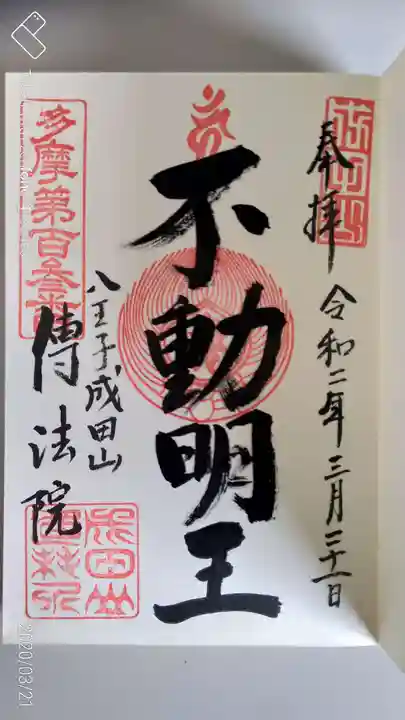 奉拝
令和二年三月二十一日
不動明王
多摩第百参番
八王子成田山
傳法院
2020/03/21